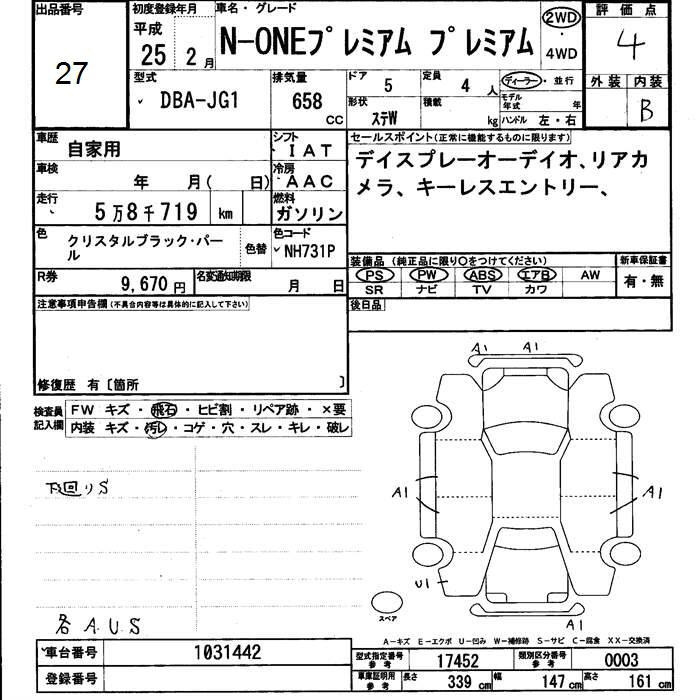 出品番号
27
初度登録年月
平成
25 2 月
車名・グレード
N-ONEプレミアム プレミアム
2WD
・
4WD
評価点
4
外装 内装
B
型式
DBA-JG1
排気量
658
CC
ドア 5
定員 4 人
ディーラー・並行
形状 ステW
積載 kg
モデル年式 年
ハンドル 左・右
車歴
自家用
シフト
IAT
車検
年 月( 日)
冷房
AAC
走行
5万8千719 km
燃料
ガソリン
色
クリスタルブラック・パール
色替
色コード
NH731P
R券
9,670円
名変通知期限
月 日
セールスポイント(正常に機能するものに限ります)
デイスプレーオーデイオ、リアカ
メラ、キーレスエントリー、
装備品 (純正品に限り○をつけてください)
PS PW ABS エアB AW
SR ナビ TV カワ
新車保証書
有・無
後日品
注意事項申告欄(不具合内容等は具体的に記入して下さい)
修復歴 有〔箇所 〕
検査員
記入欄
FW キズ・飛石・ヒビ割・リペア跡・×要
内装 キズ・汚レ・コゲ・穴・スレ・キレ・破レ
下回りS
各A.U.S
A1 A1
A1 A1
U1
A1
スペア
A-キズ E-エクボ U-凹み W-補修跡 S-サビ C-腐食 XX-交換済
車台番号 1031442
登録番号
型式指定番号
参考
17452
類別区分番号
参考
0003
車庫証明用
参考
長さ 339 cm
幅 147 cm
高さ 161 cm